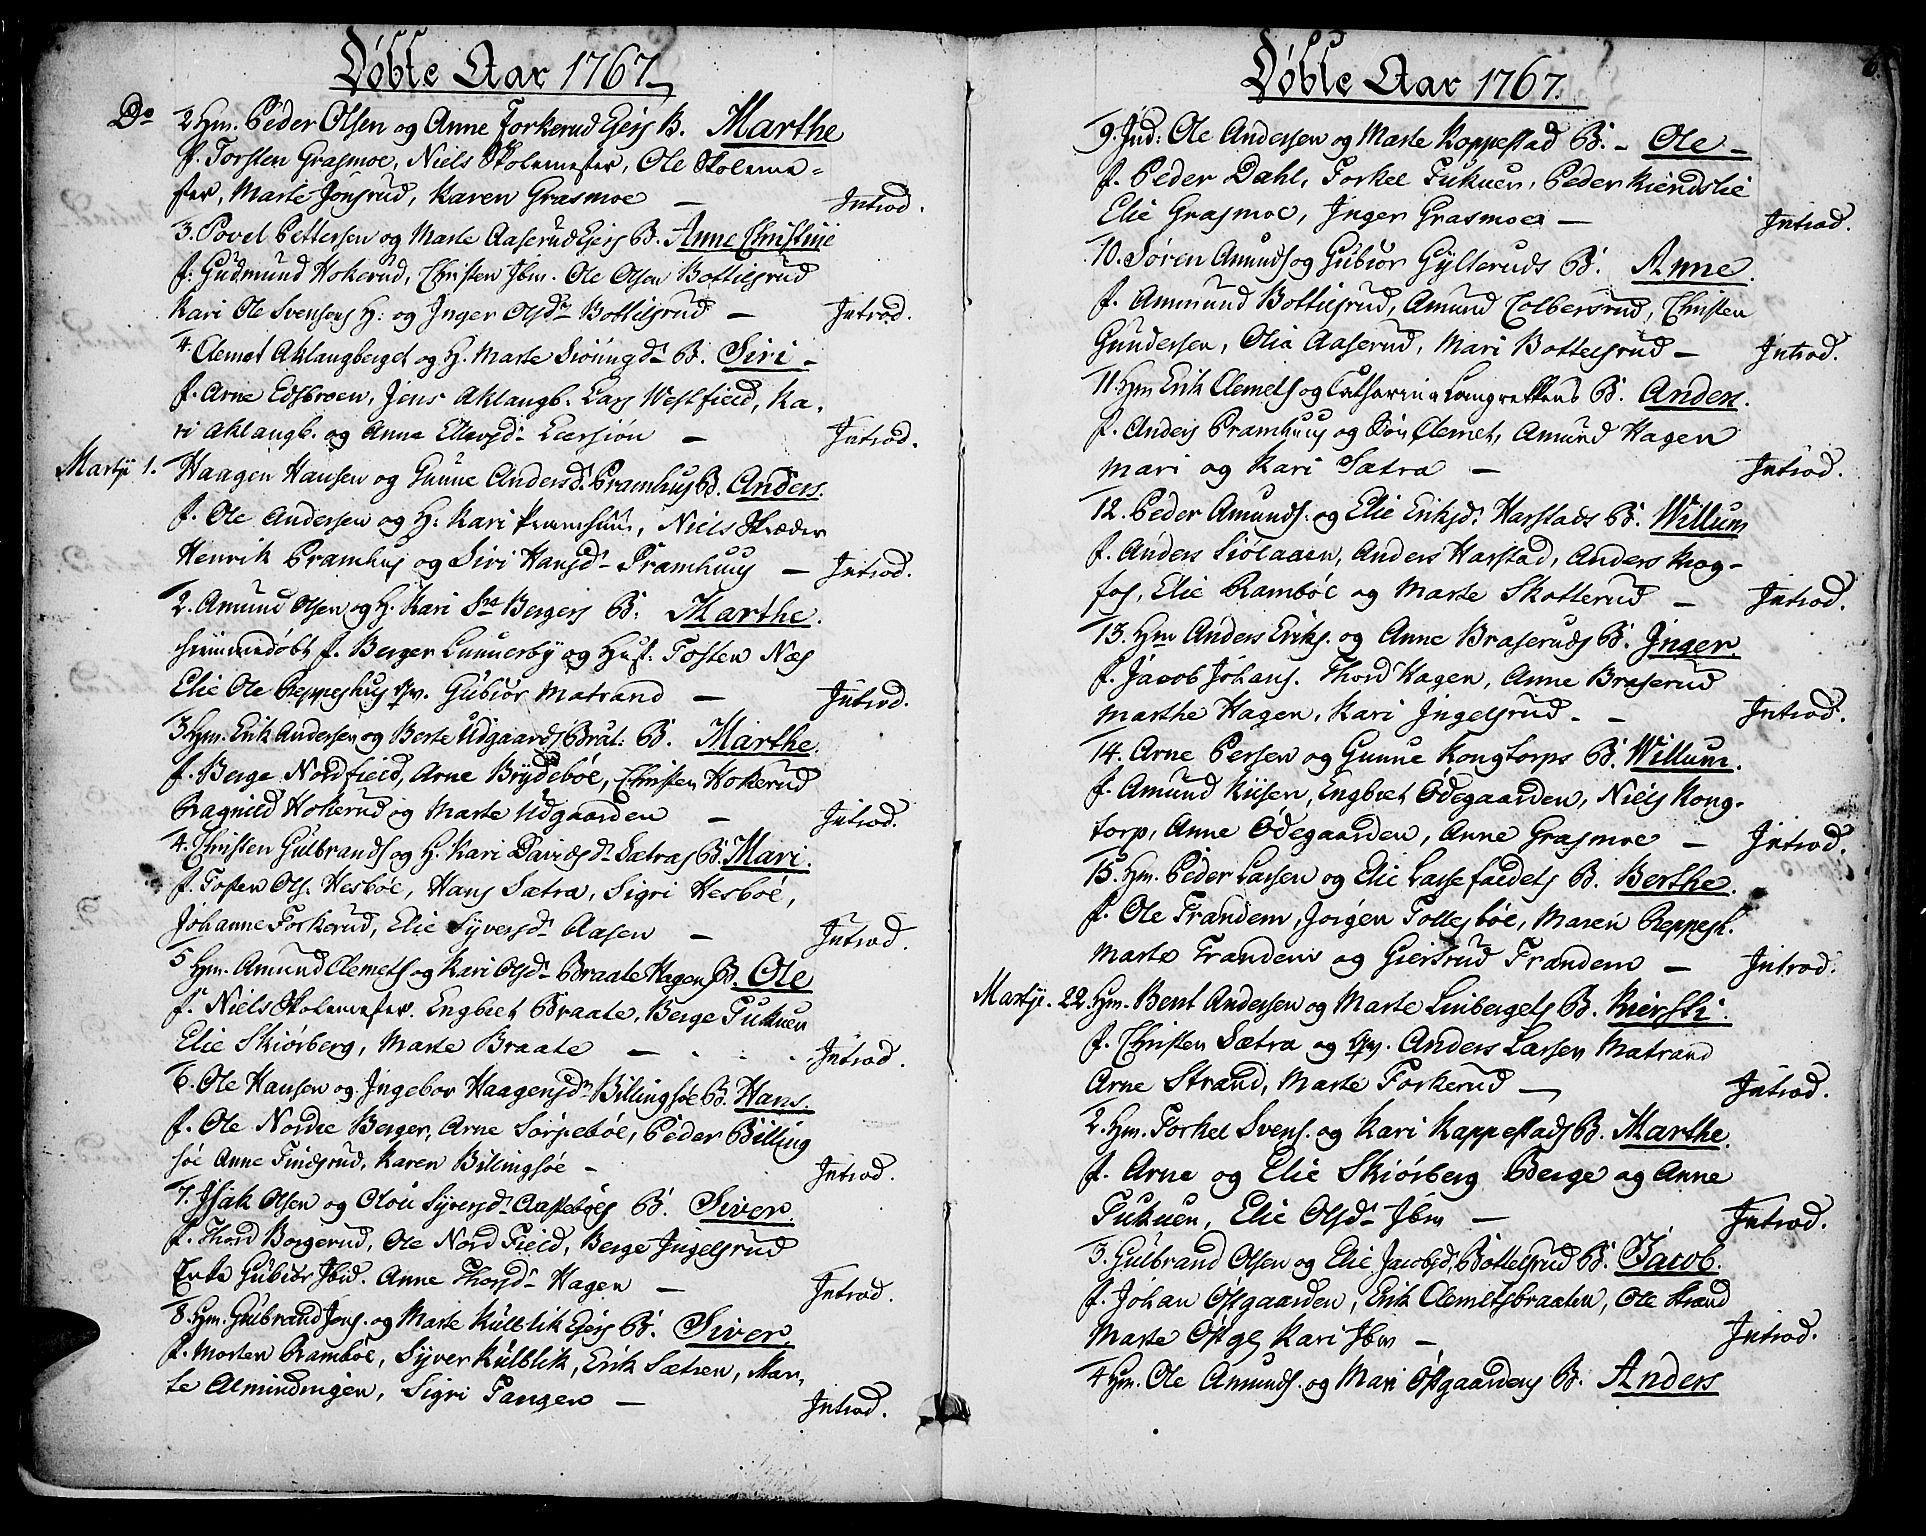 Døbte Aar 1767
Do 2. Hm. Peder Olsen og Anne Forkerud Ejers B. Marthe
f. Torsten Grasmoe, Niels Skolemester, Ole Skoleme-
ster, Marte Jonsrud, Karen Grasmoe — Introd.
3. Povel Pettersen og Marte Aaserud Ejers B. Anne Christine
f: Gudmund Hokerud, Christen Ibm. Ole Olsen Bottilsrud
Kari Ole Svensens H: og Inger Olsd. Bottilsrud — Introd.
4. Clemet Aklangberget og H. Marte Siøungd. B. Siri —
f. Arne Edsbroen, Jens Aklangb. Lars Westfield, Ka-
ri Aklangb. og Anne Ellevsd. Leersiøn — Introd.
Martji 1. Haagen Hansen og Gunne Andersd. Pramhus B. Anders.
f. Ole Andersen og H: Kari Pramhuus, Niels Skræder
Henrik Pramhus og Siri Hansd. Pramhuus — Introd.
2. Amund Olsen og H. Kari Sdre Bergers B: Marthe.
hiemmedøbt f. Berger Lunnerby og Hust: Tosten Næs
Elie Ole Reppeshus Qv. Gubiør Matrand — Introd.
3. Hm. Erik Andersen og Berte Udgaards Braat: B. Marthe.
f. Berge Nordfield, Arne Brydebøe, Christen Hokerud
Ragnild Hokerud og Marte Udgaarden — Introd.
4. Christen Gulbrands. og H. Kari Davidsd. Sætras B. Mari.
f. Tosten Ols. Hesbøe, Hans Sætra, Sigri Hesboé,
Johanne Forkerud, Elie Syversd. Aasen — Introd.
5 Hm. Amund Clemets. og Kari Olsd. Braate Hagen B. Ole
f. Niels Skolemester. Engbret Braate, Berge Tukuen
Elie Skiørberg, Marte Braate — Introd.
6. Ole Hansen og Ingebor Haagensd. Billingsøe B. Hans.
f. Ole Nordre Berger, Arne Sorpebøe, Peder Billing
søe Anne Findsrud, Karen Billingsøe — Introd.
7. Isak Olsen og Oloú Syversd. Aastebøes B. Siver.
f. Thord Borgerud, Ole Nord Field, Berge Ingelsrud
Enke Gubiør Ibid. Anne Thorsd. Hagen — Introd.
8. Hm. Gulbrand Jons. og Marte Kulblik Ejers B. Siver.
f. Morten Rambøe, Syver Kulblik, Erik Sætren, Mar-
te Almindingen, Sigri Tangen — Introd.
Døbte Aar 1767.
9. Jnd: Ole Andersen og Marte Kappestad B. — Ole —
f. Peder Dahl, Forkel Tukuen, Peder Kiendslie
Elie Grasmoe, Inger Grasmoe — Introd.
10. Søren Amunds. og Gubiør Gylteruds B. Anne.
f. Ammund Bottilsrud, Amund Colbersrud, Christen
Gundersen, Olia Aaserud, Mari Bottelsrud — Introd.
11. Hm Erik Clemets. og Catharina Langrekkens B. Anders.
f. Anders Pramhuus og Søn Clemet, Amund Hagen
Mari og Kari Sætra — Introd.
12. Peder Amunds. og Elie Eriksd. Harstads B. Willum
f. Anders Siølaaen, Anders Harstad, Anders Krog-
fos, Elie Rambøe og Marte Skotterud — Introd.
13. Hm Anders Eriks. og Anne Braseruds B. Inger.
f. Jacob Johans. Thord Hagen, Anne Braserud
Marthe Hagen, Kari Ingelsrud. — Introd.
14. Arne Persen og Gunne Kongtorps B. Willum.
f. Amund Kiisen, Engbret Ødegaarden, Niels Kong-
torp, Anne Ødegaarden, Anne Grasmoe — Introd.
15. Hm. Peder Larsen og Elie Lassefaldets B. Berthe.
f. Ole Trandem, Jorgen Tollesbøe, Maren Reppesh.
Marte Trandem og Giertrud Trandem — Introd.
Martji. 22. Hm. Bent Andersen og Marte Linbergets B. Kiersti.
f. Christen Sætra og Qv. Anders Larsen Matrand
Arne Strand, Marte Forkerud — Introd.
2. Hm. Forkel Svens. og Kari Kappestads B. Marthe.
f. Arne og Elie Skiørberg Berge og Anne
Tukuen, Elie Olsd. Ibm — Introd.
3. Gulbrand Olsen og Elie Jacobsd. Bottelsrud B. Jacob.
f. Johan Østgaarden, Erik Clemetsbraaten, Ole Strand
Marte Østg. Kari Ibm — Introd.
4 Hm. Ole Amunds. og Mari Østgaardens B. Anders